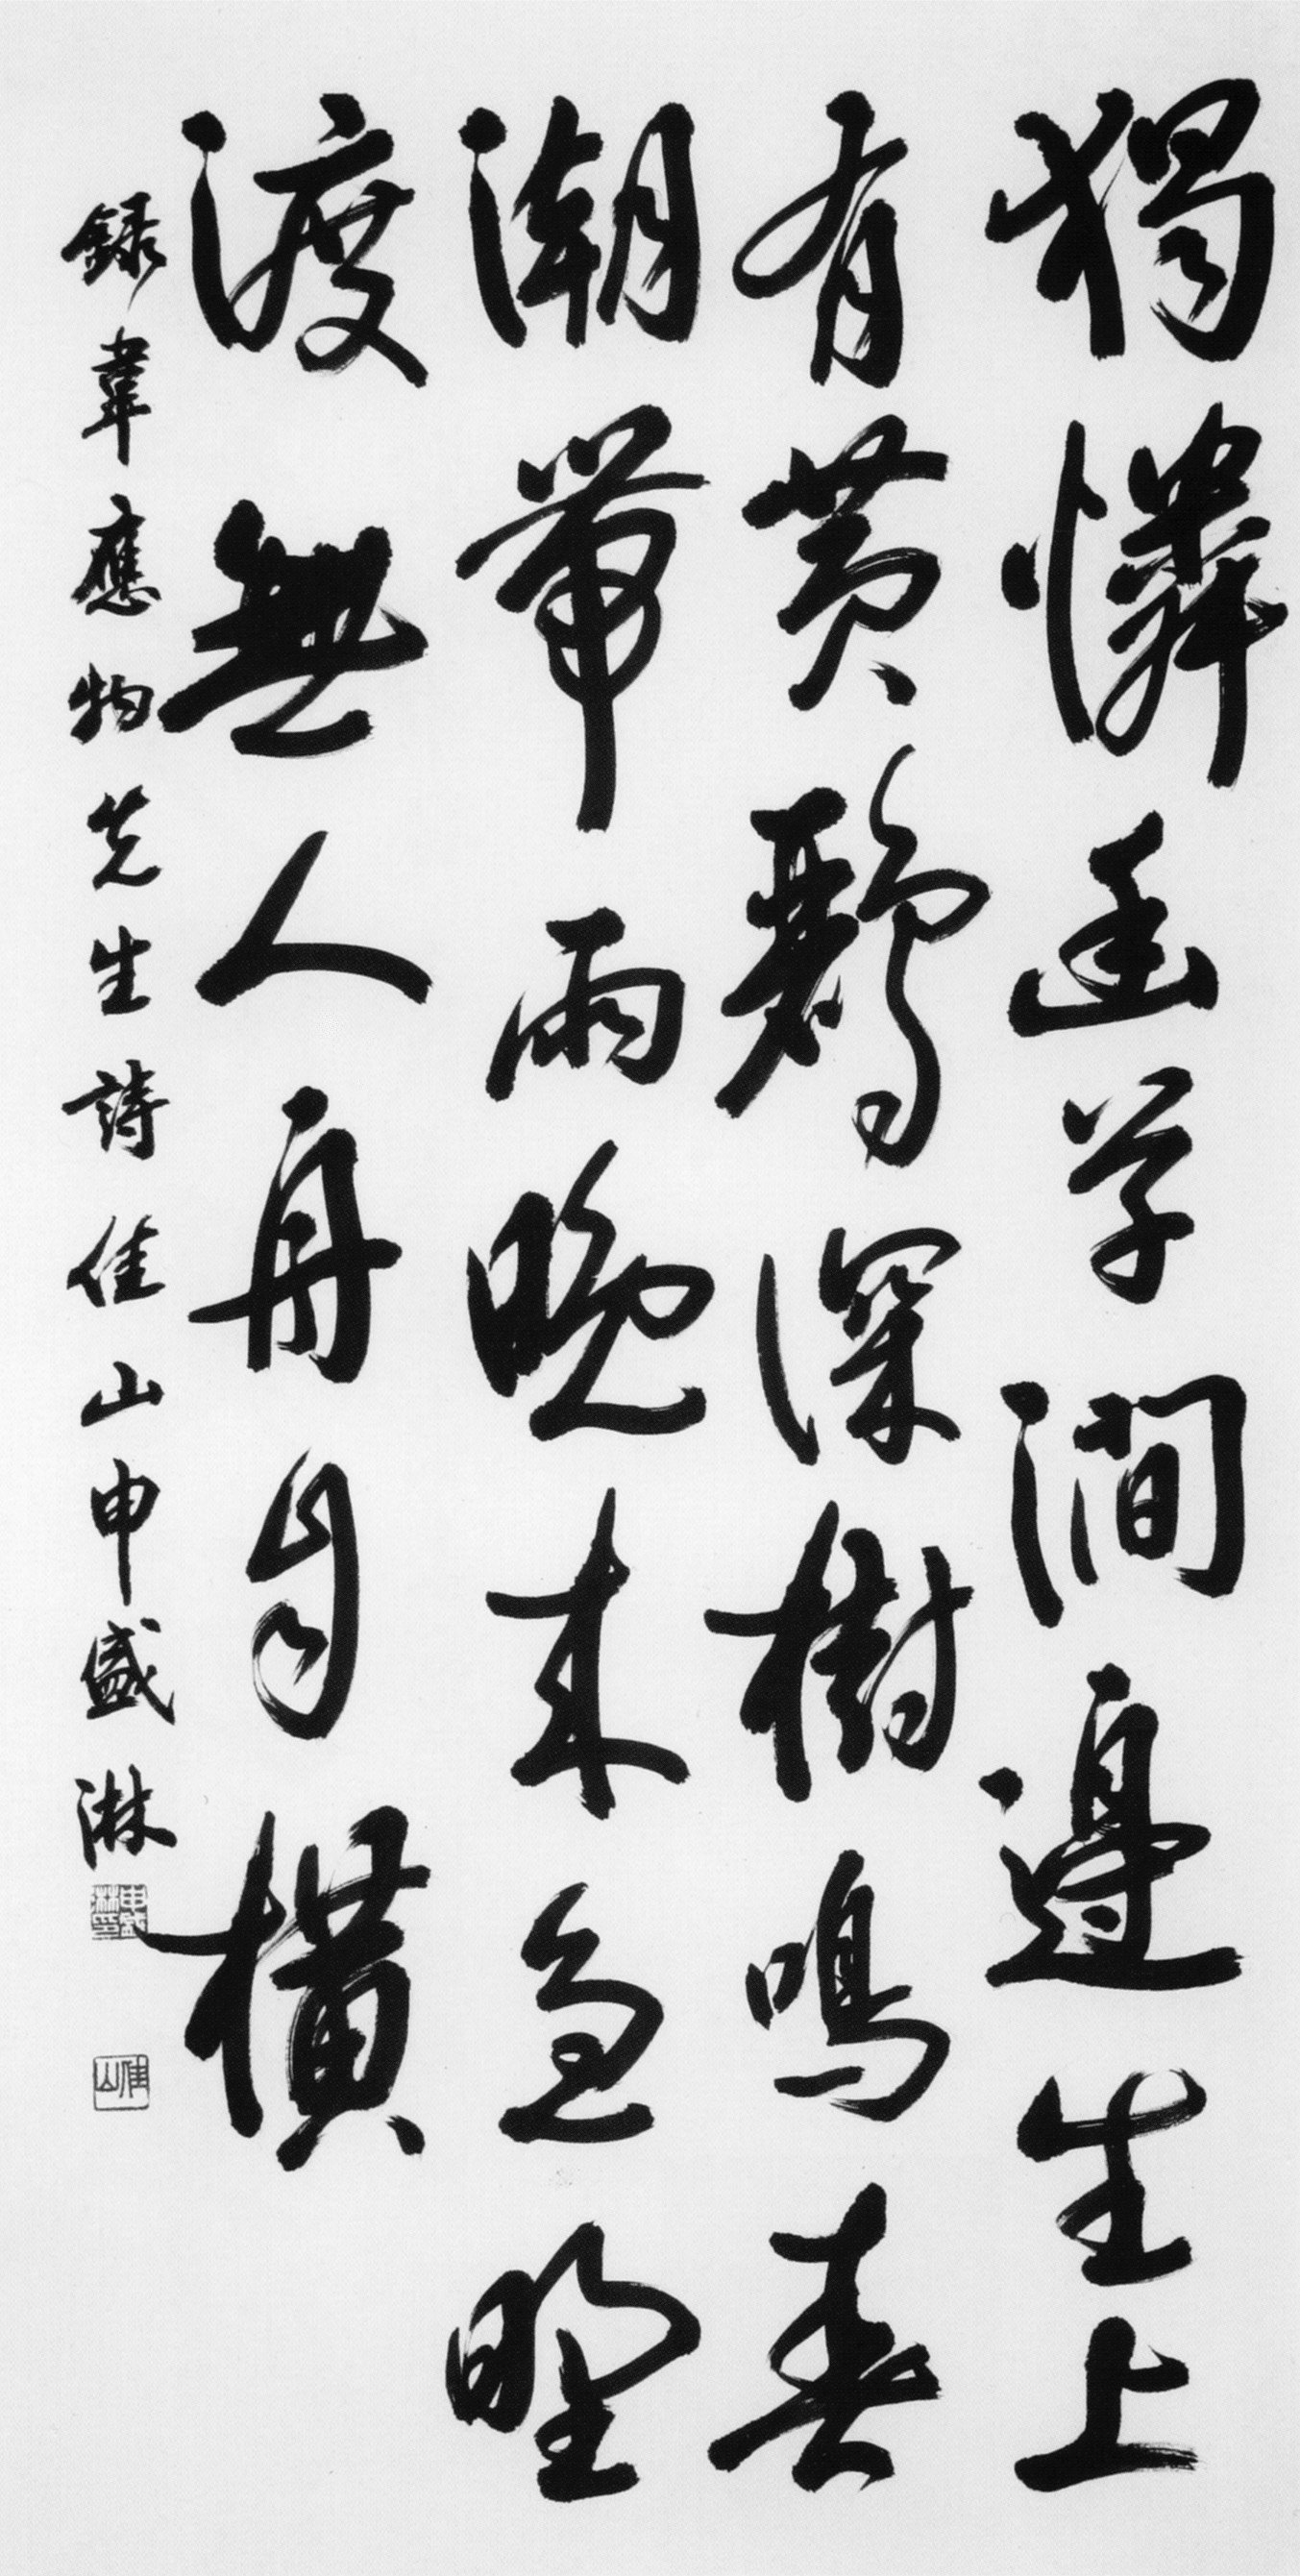 獨憐幽草澗邊生上
有黃鸝深樹鳴春
潮帶雨晚來急野
渡無人舟自橫
錄韋應物先生詩 佳山申盛淋
申盛淋印
佳山